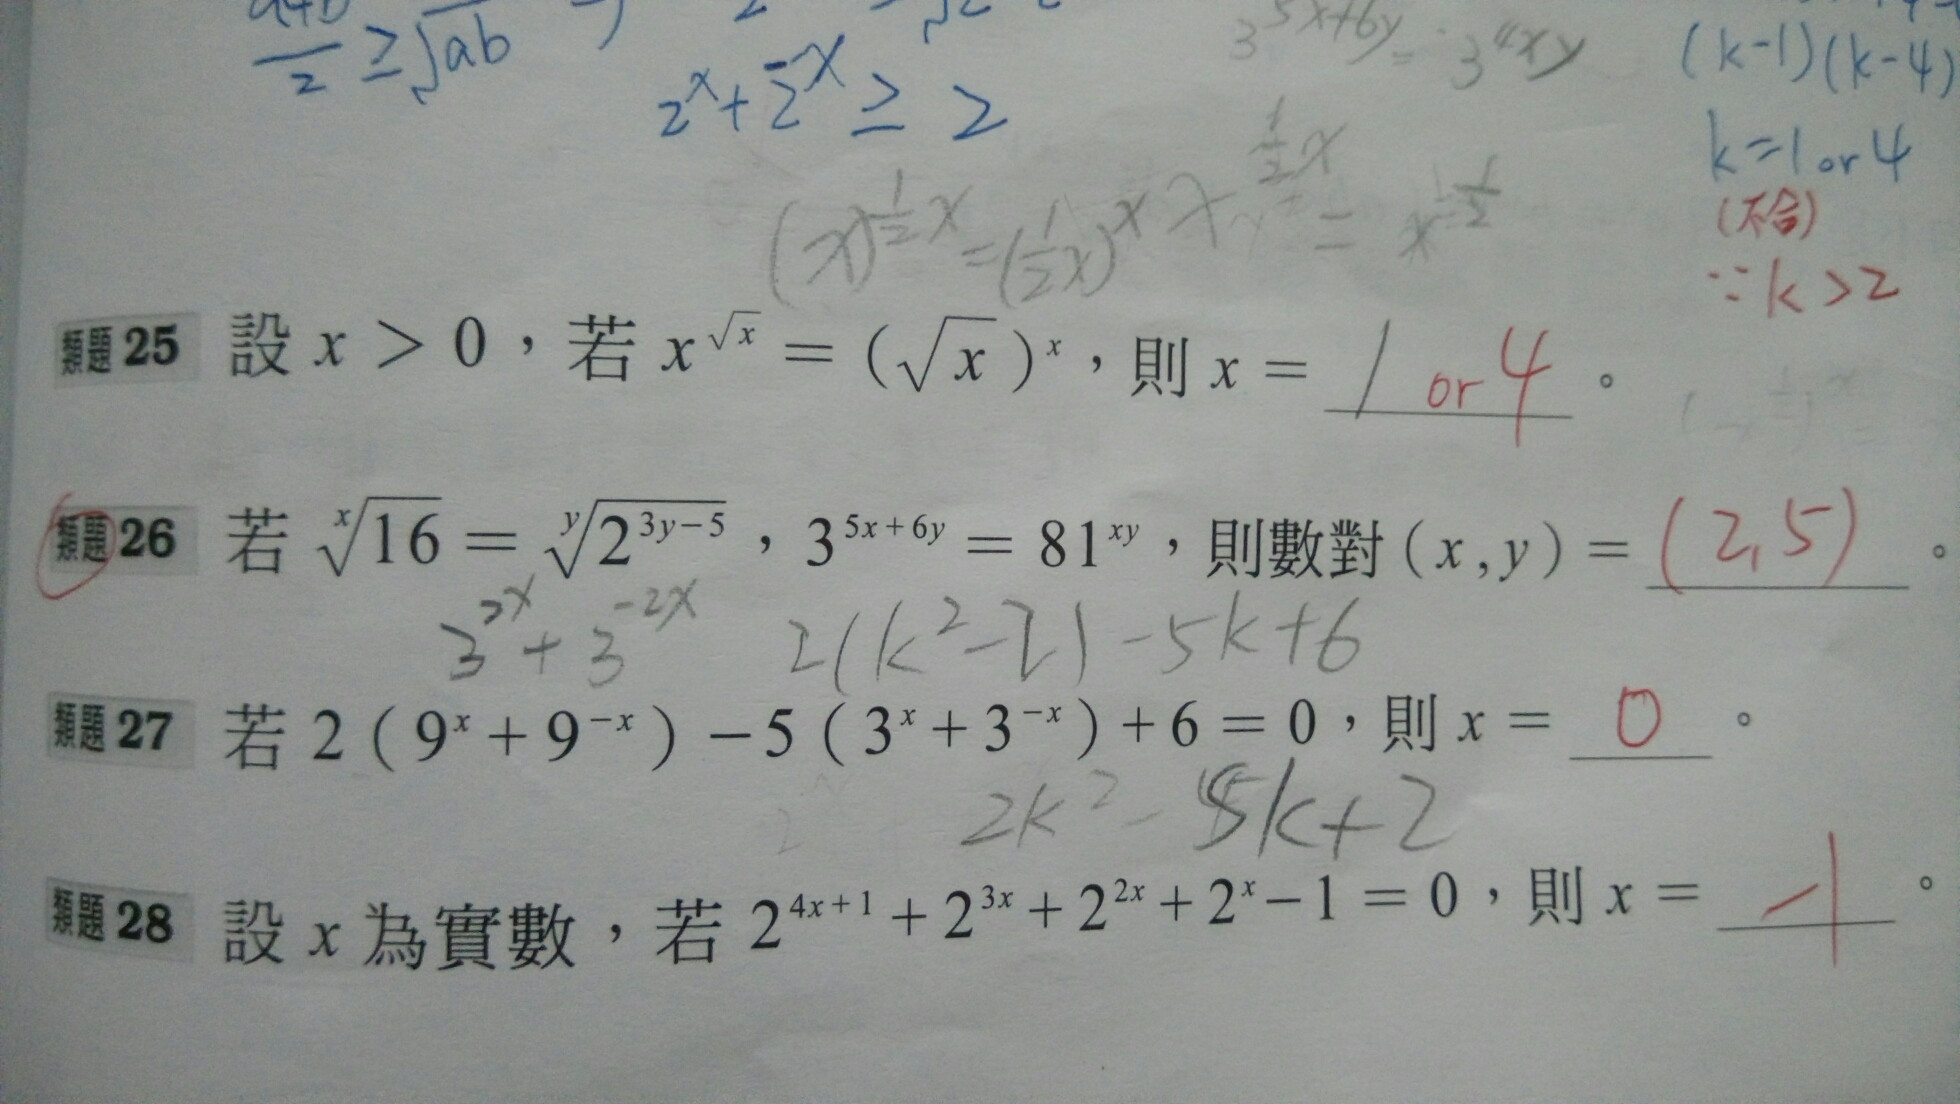 a+b/2 ≥ √ab
2^x + 2^-x ≥ 2
3^5x+6y = 3^4xy
(k-1)(k-4)
k=1 or 4
(不合)
∵k>2
(x)^½x = (½x)^x x^½x = x^½
類題25 設 x > 0，若 x^√x = (√x)^x，則 x = 1 or 4 。
類題26 若 ˣ√16 = ʸ√2^3y-5，3^5x+6y = 81^xy，則數對(x,y) = (2,5) 。
3^2x + 3^-2x 2(k²-2)-5k+6
類題27 若 2(9^x + 9^-x) - 5(3^x + 3^-x) + 6 = 0，則 x = 0 。
2k² - 5k+2
類題28 設 x 為實數，若 2^4x+1 + 2^3x + 2^2x + 2^x - 1 = 0，則 x = -1 。